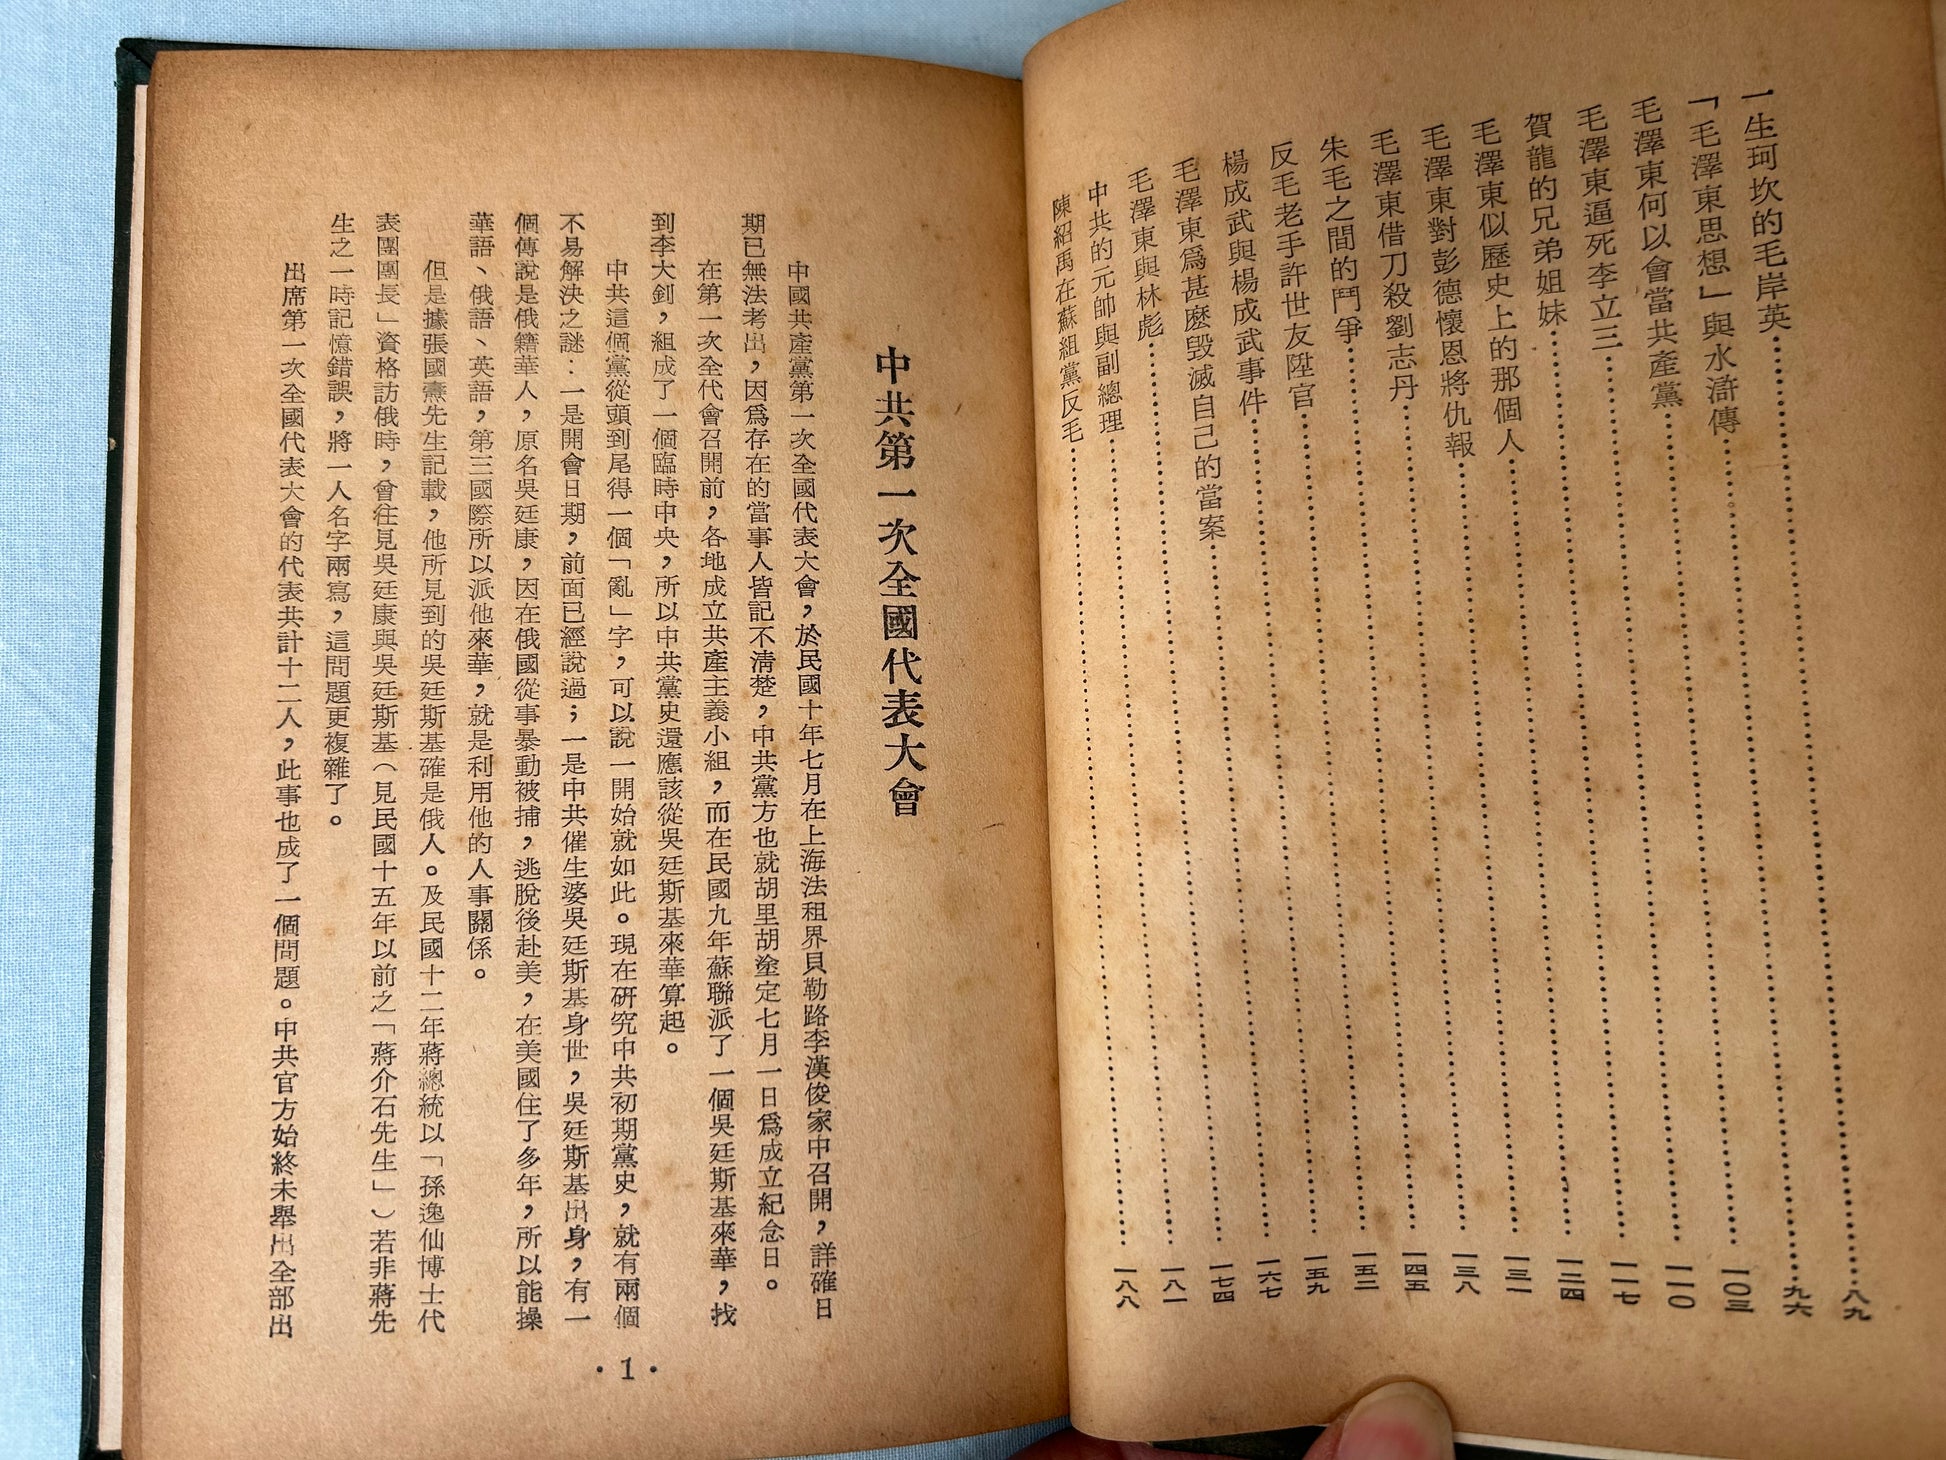 一生坷坎的毛岸英……八九
「毛澤東思想」與水滸傳……九六
毛澤東何以會當共產黨……一〇三
毛澤東逼死李立三……一一〇
賀龍的兄弟姐妹……一一七
毛澤東似歷史上的那個人……一二四
毛澤東對彭德懷恩將仇報……一三一
毛澤東借刀殺劉志丹……一三八
朱毛之間的鬥爭……一四五
反毛老手許世友陞官……一五二
楊成武與楊成武事件……一五九
毛澤東爲甚麽毀滅自己的當案……一六七
毛澤東與林彪……一七四
中共的元帥與副總理……一八一
陳紹禹在蘇組黨反毛……一八八
中共第一次全國代表大會
中國共產黨第一次全國代表大會,於民國十年七月在上海法租界貝勒路李漢俊家中召開,詳確日
期已無法考出,因爲存在的當事人皆記不淸楚,中共黨方也就胡里胡塗定七月一日爲成立紀念日。
在第一次全代會召開前,各地成立共產主義小組,而在民國九年蘇聯派了一個吳廷斯基來華,找
到李大釗,組成了一個臨時中央,所以中共黨史還應該從吳廷斯基來華算起。
中共這個黨從頭到尾得一個「亂」字,可以說一開始就如此。現在研究中共初期黨史,就有兩個
不易解決之謎:一是開會日期,前面已經說過;一是中共催生婆吳廷斯基身世,吳廷斯基出身,有一
個傳說是俄籍華人,原名吳廷康,因在俄國從事暴動被捕,逃脫後赴美,在美國住了多年,所以能操
華語、俄語、英語,第三國際所以派他來華,就是利用他的人事關係。
但是據張國燾先生記載,他所見到的吳廷斯基確是俄人。及民國十二年蔣總統以「孫逸仙博士代
表團團長」資格訪俄時,曾往見吳廷康與吳廷斯基(見民國十五年以前之「蔣介石先生」)若非蔣先
生之一時記憶錯誤,將一人名字兩寫,這問題更複雜了。
出席第一次全國代表大會的代表共計十二人,此事也成了一個問題。中共官方始終未舉出全部出
·1·